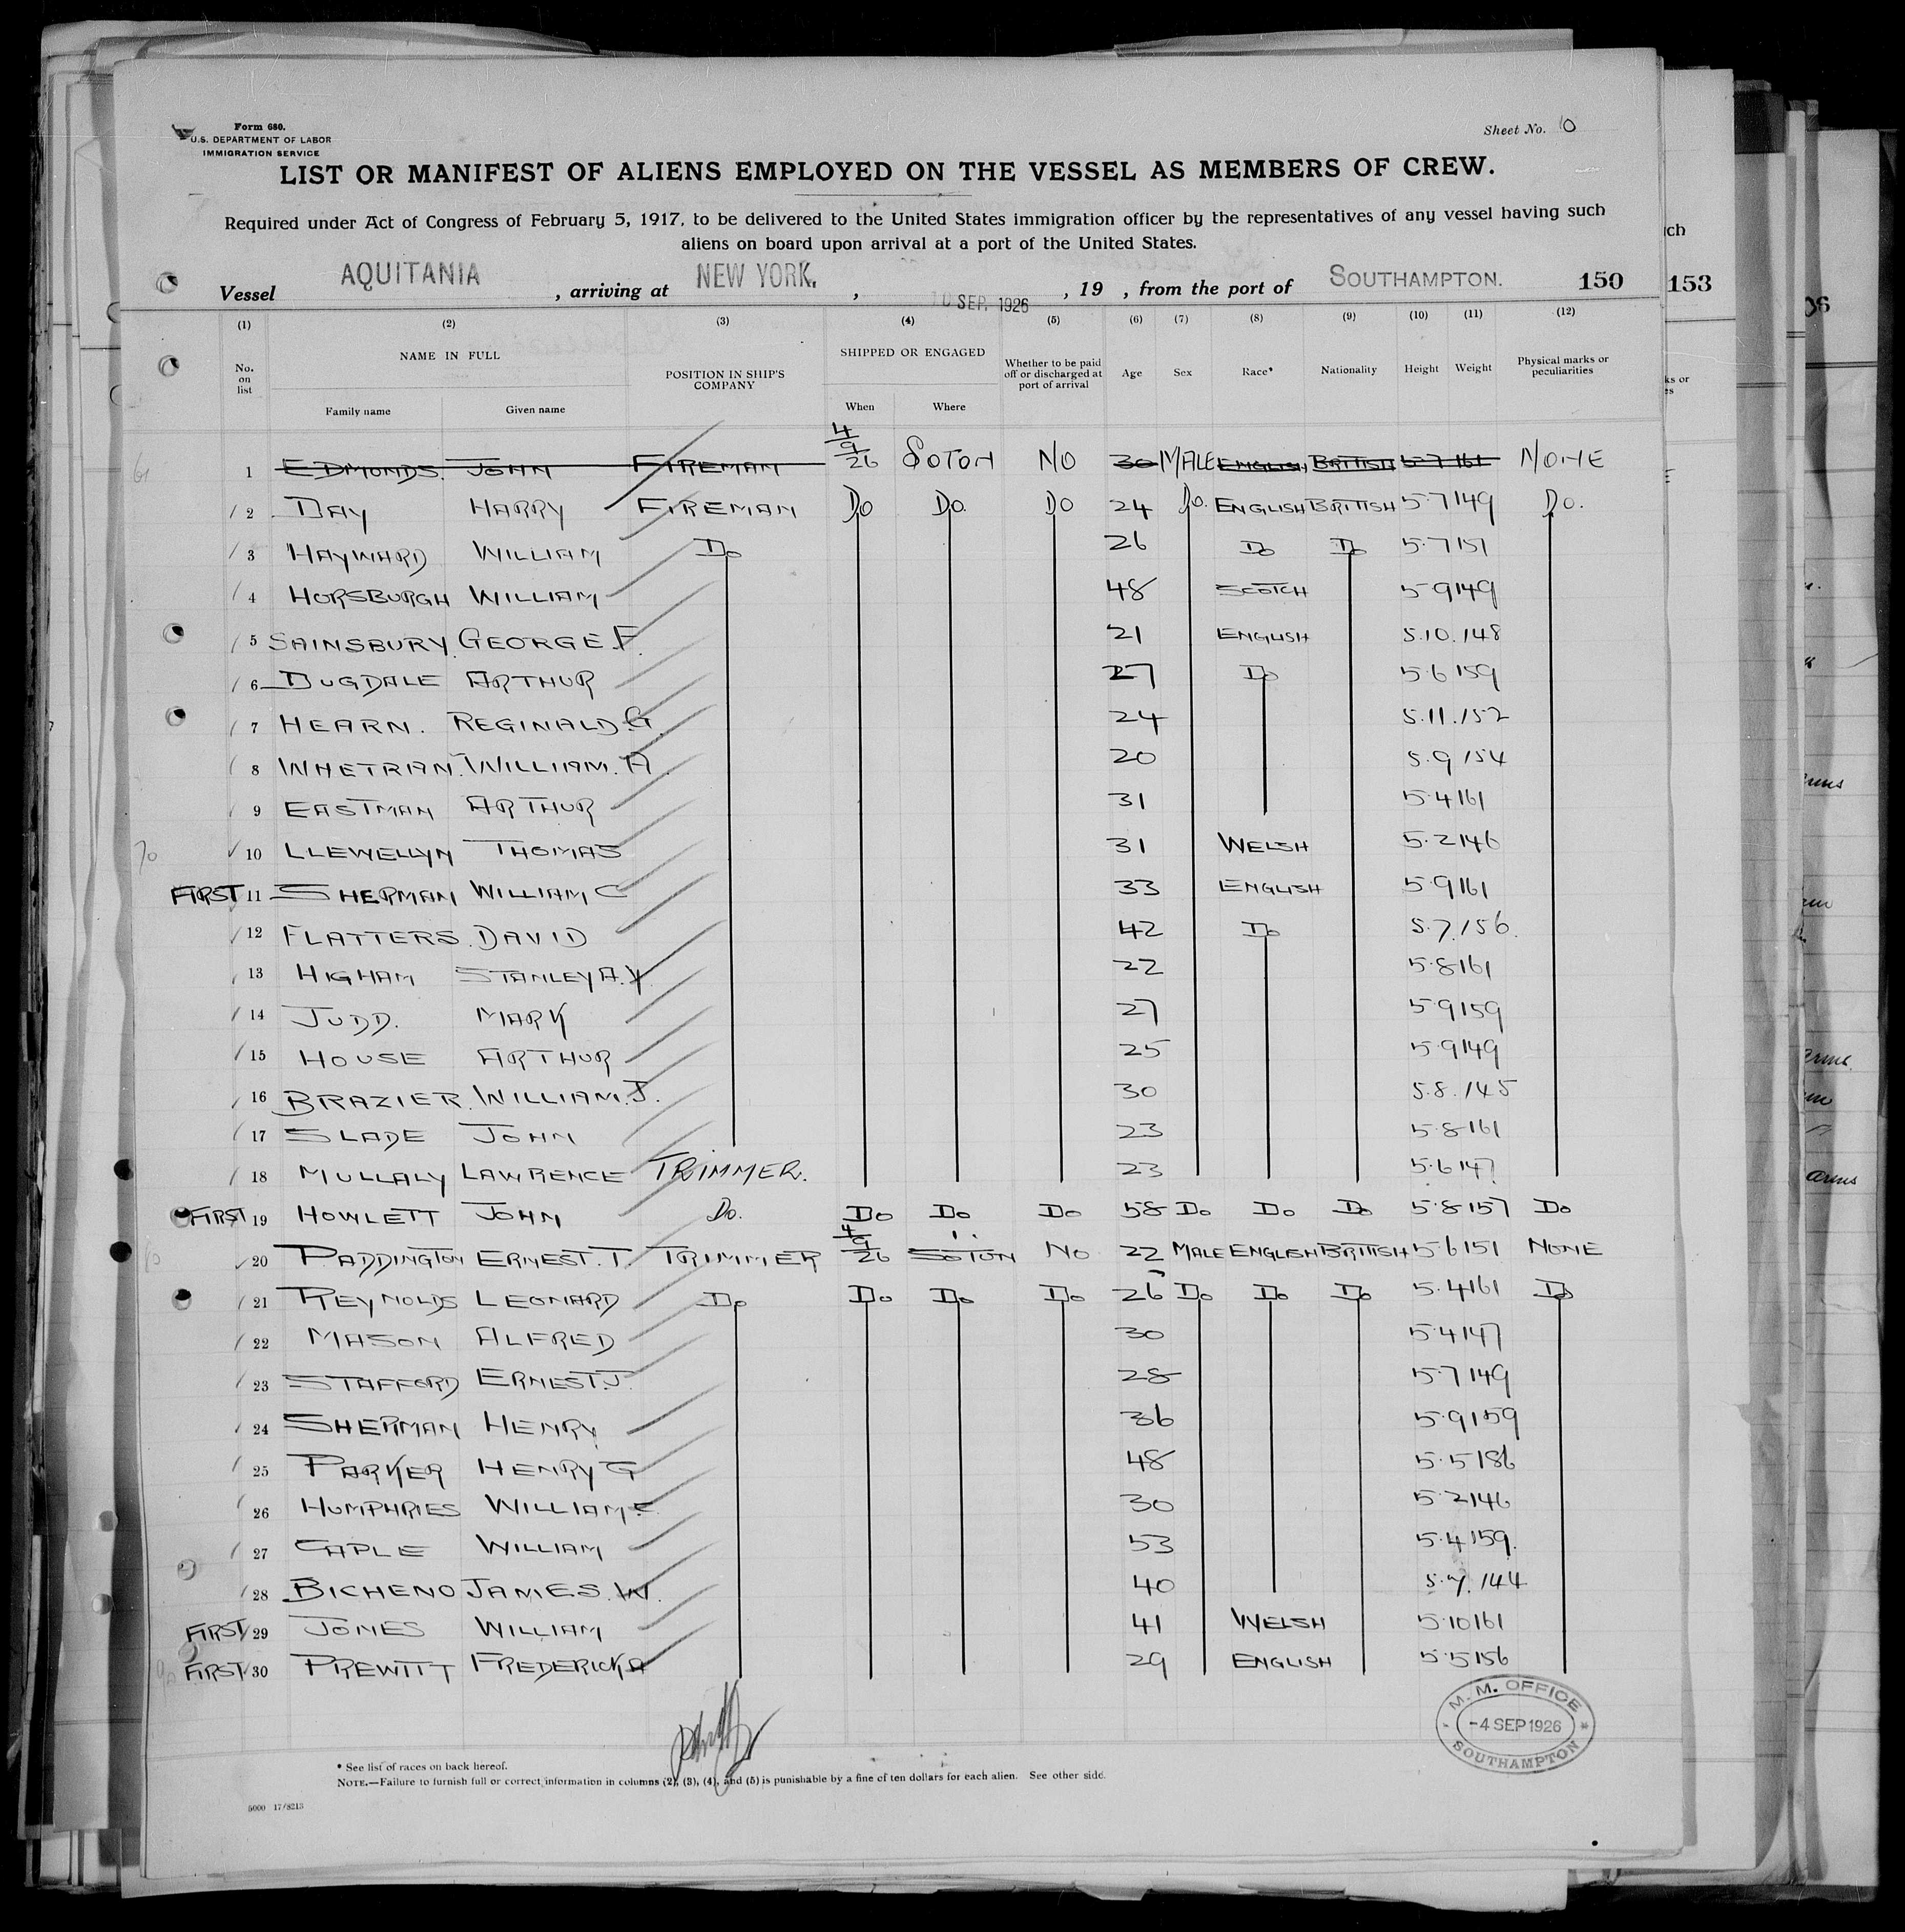 Form 680.
U.S. DEPARTMENT OF LABOR
IMMIGRATION SERVICE
Sheet No. 10
LIST OR MANIFEST OF ALIENS EMPLOYED ON THE VESSEL AS MEMBERS OF CREW.
Required under Act of Congress of February 5, 1917, to be delivered to the United States immigration officer by the representatives of any vessel having such
aliens on board upon arrival at a port of the United States.
Vessel AQUITANIA, arriving at NEW YORK., 10 SEP. 1926, 19 , from the port of SOUTHAMPTON. 150 153
(1) (2) (3) (4) (5) (6) (7) (8) (9) (10) (11) (12)
No. on list NAME IN FULL POSITION IN SHIP'S COMPANY SHIPPED OR ENGAGED Whether to be paid off or discharged at port of arrival Age Sex Race* Nationality Height Weight Physical marks or peculiarities
Family name Given name When Where
61 1 EDMONDS. JOHN FIREMAN 4/9/26 SOTON NO 30 MALE ENGLISH BRITISH 5·7 161 NONE
2 DAY HARRY FIREMAN DO DO. DO 24 DO. ENGLISH BRITISH 5·7 149 DO.
3 HAYWARD WILLIAM Do 26 Do Do 5·7 151
4 HORSBURGH WILLIAM 48 SCOTCH 5·9 149
5 SAINSBURY. GEORGE.F. 21 ENGLISH 5.10.148
6 DUGDALE ARTHUR 27 Do 5·6 159
7 HEARN. REGINALD.G. 24 5.11.152
8 WHETRAN. WILLIAM.A. 20 5.9 154
9 EASTMAN ARTHUR 31 5·4 161
70 10 LLEWELLYN THOMAS 31 WELSH 5·2 146
FIRST 11 SHERMAN WILLIAM C 33 ENGLISH 5·9 161
12 FLATTERS. DAVID 42 Do 5.7.156.
13 HIGHAM STANLEY A.V. 22 5·8 161
14 JUDD. MARK 27 5·9 159
15 HOUSE ARTHUR 25 5·9 149
16 BRAZIER. WILLIAM.J. 30 5.8.145
17 SLADE JOHN 23 5·8 161
18 MULLALY LAWRENCE TRIMMER. 23 5·6 147
FIRST 19 HOWLETT JOHN Do. Do Do Do 58 Do Do Do 5·8 157 Do
20 PADDINGTON ERNEST.T. TRIMMER 4/9/26 SOTON NO 22 MALE ENGLISH BRITISH 5·6 151 NONE
21 REYNOLDS LEONARD Do Do Do Do 26 Do Do Do 5·4 161 Do
22 MASON ALFRED 30 5·4 147
23 STAFFORD ERNEST.J. 28 5·7 149
24 SHERMAN HENRY 36 5·9 159
25 PARKER HENRY G 48 5·5 186
26 HUMPHRIES WILLIAM F. 30 5·2 146
27 CAPLE WILLIAM 53 5·4 159.
28 BICHENO JAMES.W. 40 5.7.144
FIRST 29 JONES WILLIAM 41 WELSH 5·10 161
FIRST 30 PREWITT FREDERICK A 29 ENGLISH 5·5 156
M. M. OFFICE
-4 SEP 1926
SOUTHAMPTON
* See list of races on back hereof.
NOTE.—Failure to furnish full or correct information in columns (2), (3), (4), and (5) is punishable by a fine of ten dollars for each alien. See other side.
5000 17/8213